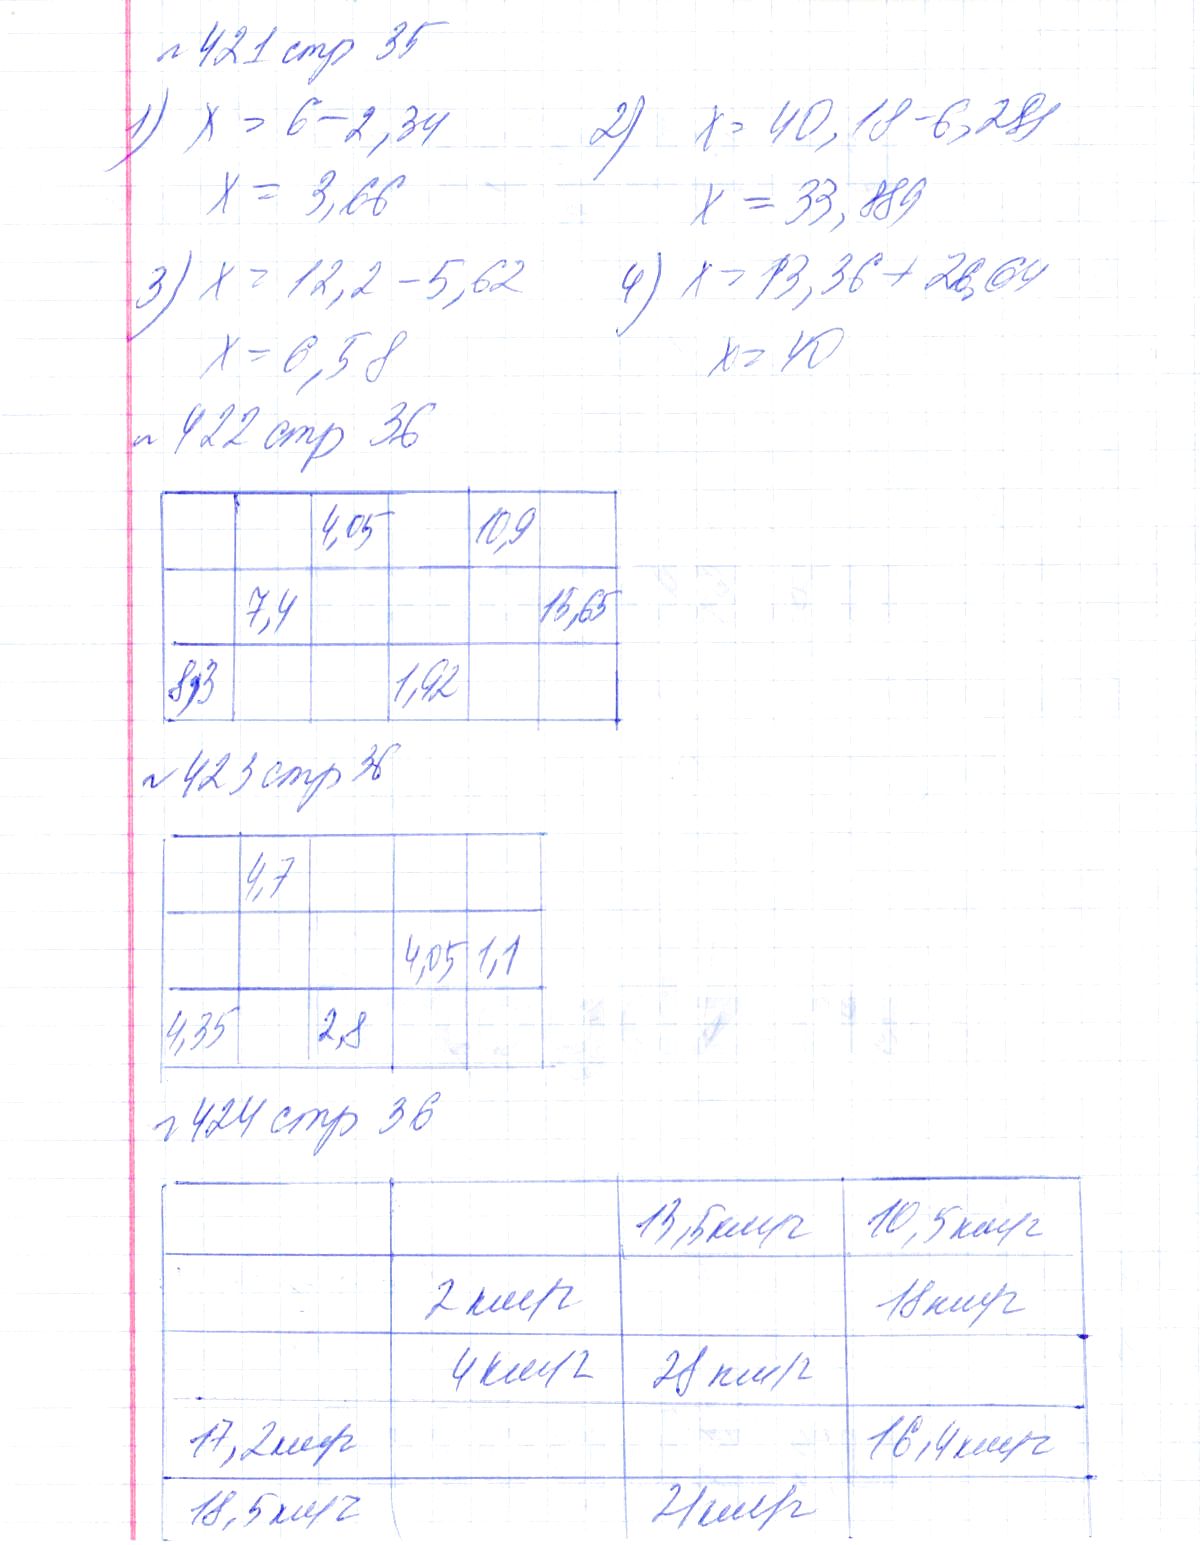 ~ 421 стр 35
1) x = 6 - 2,34 2) x = 40,18 - 6,281
x = 3,66 x = 33,889
3) x = 12,2 - 5,62 4) x = 13,36 + 26,64
x = 6,58 x = 40
~ 422 стр 36
4,05 10,9
7,4 15,65
8,3 1,92
~ 423 стр 36
4,7
4,05 1,1
4,35 2,8
~ 424 стр 36
13,5 км/ч 10,5 км/ч
2 км/ч 18 км/ч
4 км/ч 28 км/ч
17,2 км/ч 16,4 км/ч
18,5 км/ч 21 км/ч